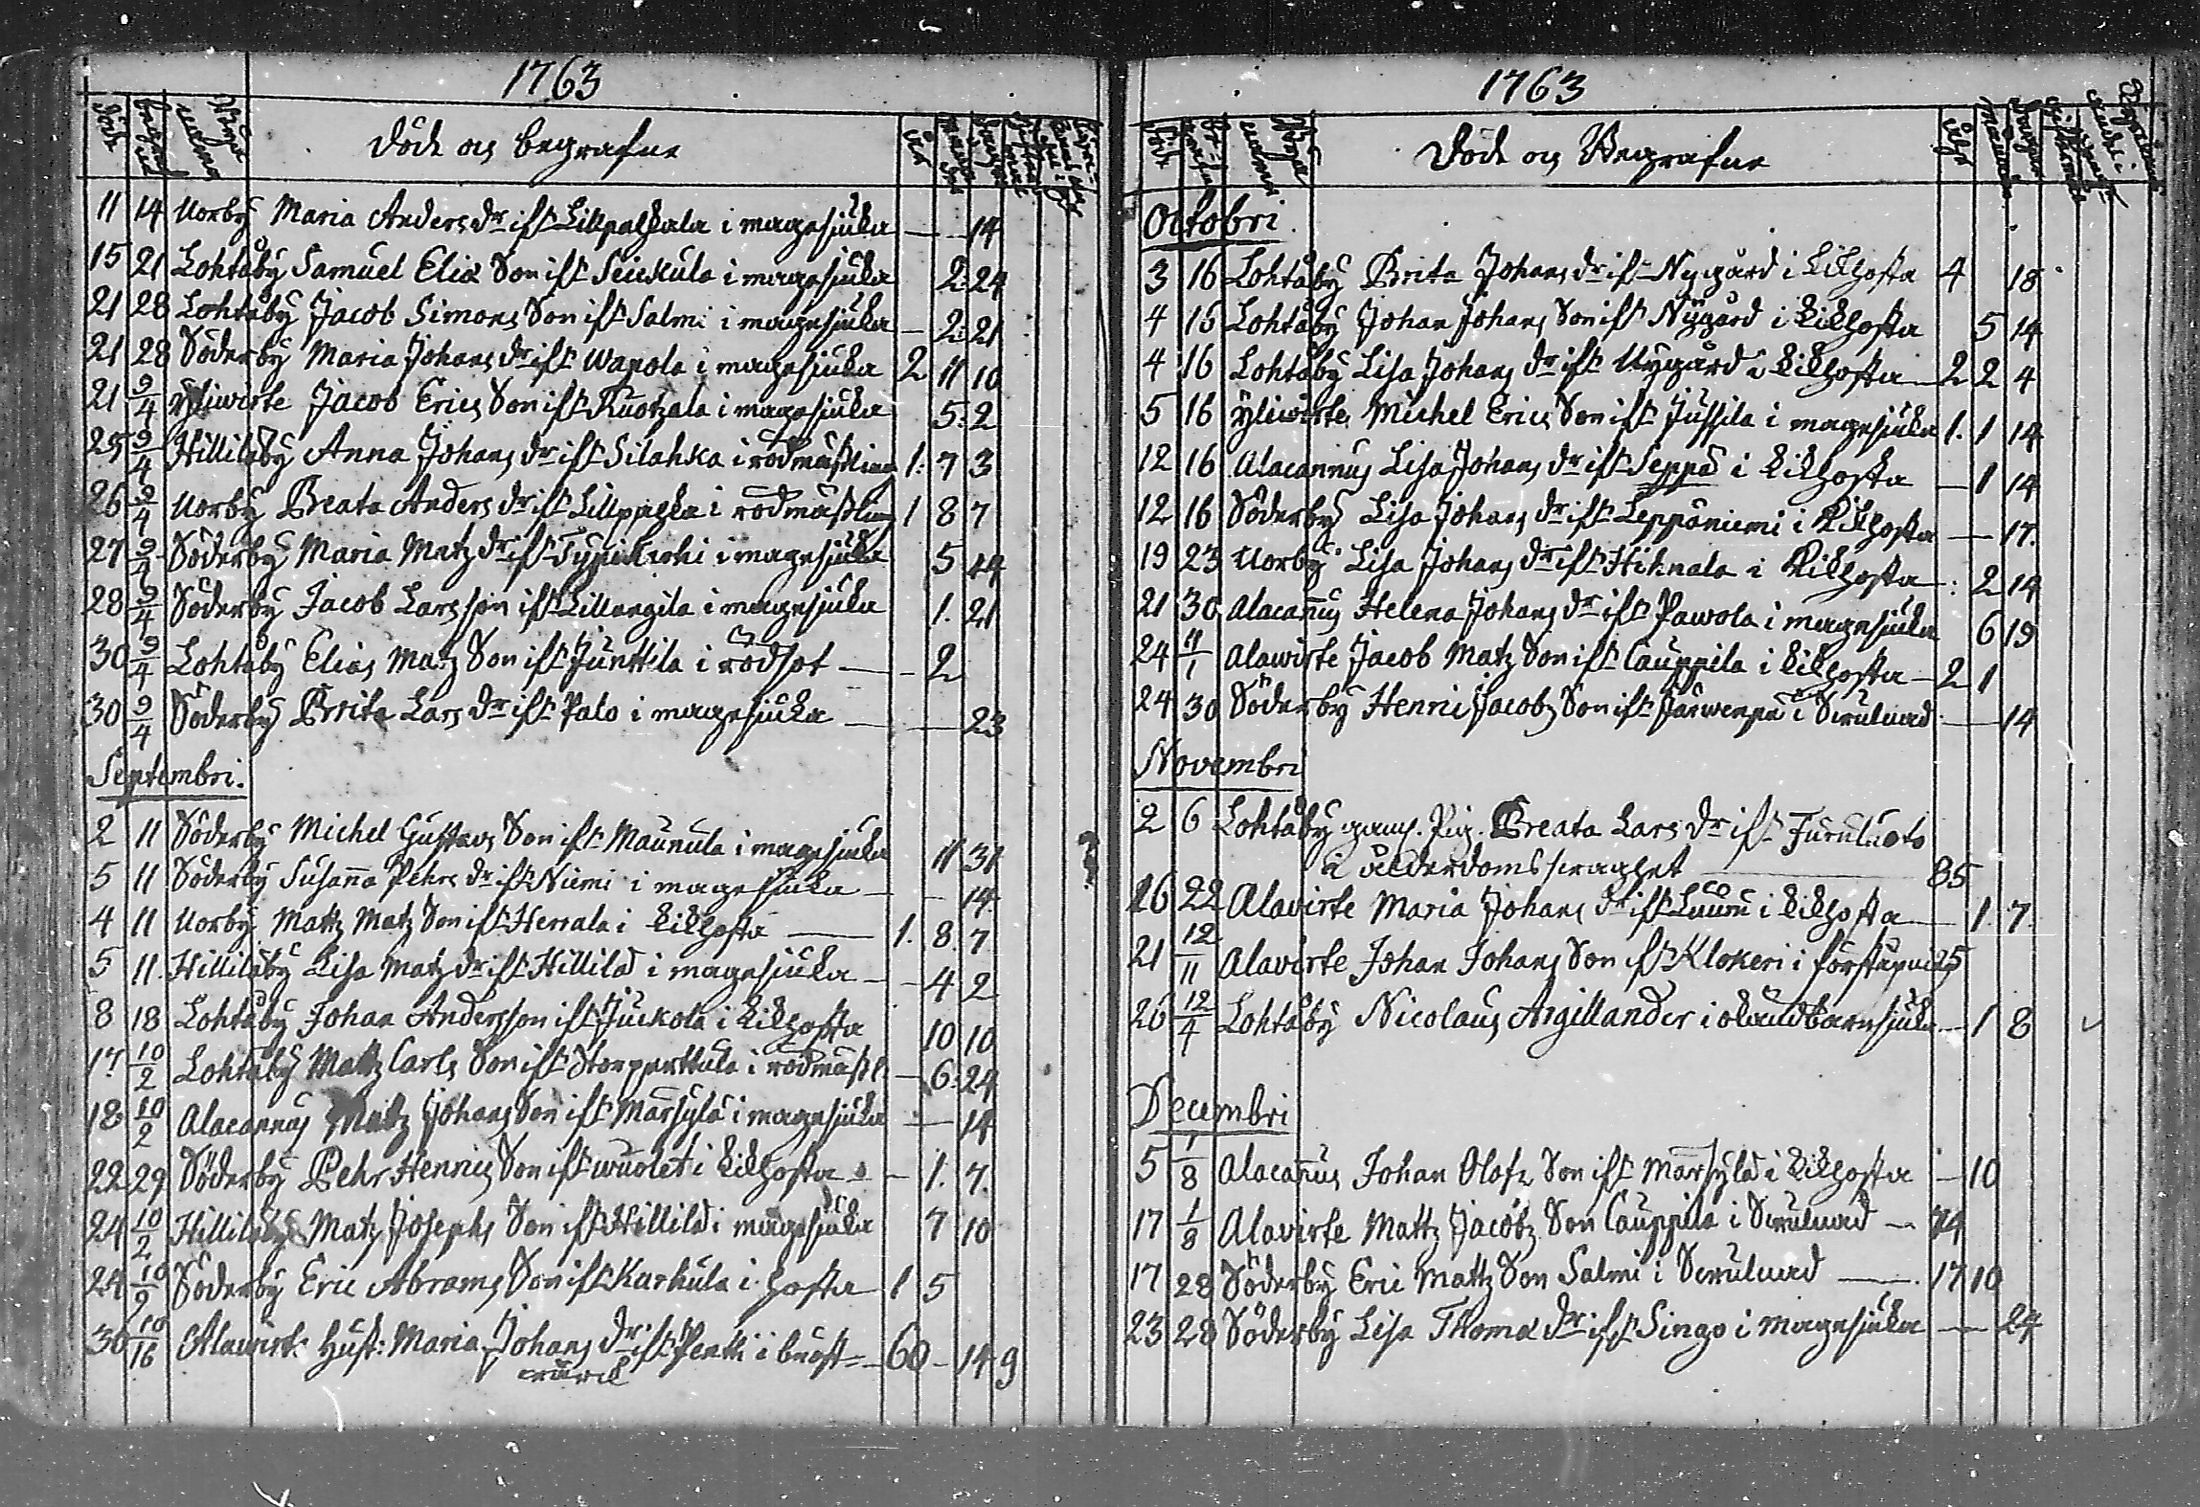 1763
Död
Byarnas
Död och begrafne
År
11 14 Uorby Maria Anders dr ifr. Lillpelkala i magesjuka — — 14
15 21 Lohtåby Samuel Elia Son ifr. Seickula i magesjuka 2. 24
21 28 Lohtåby Jacob Simons Son ifr. Salmi i magesjuka — 2. 21
21 28 Söderby Maria Johans dr ifr. Wapola i magesjuka 2 11 10
21 9/4 Yliwirte Jacob Erics Son ifr. Ruotzala i magesjuka 5. 2
25 9/4 Hillilåby Anna Johans dr ifr. Silahka i rödmässling 1. 7 3
26 9/4 Uorby Beata Anders dr ifr. i rödmässling 1 8 7
27 9/4 Söderby Maria Matz dr ifr. i magesjuka 5 14
28 9/4 Söderby Jacob Larsson ifr. i magesjuka 1. 21
30 9/4 Lohtåby Elias Matz Son ifr. Junttila i rödsot — — 2
30 9/4 Söderby Brita Lars dr ifr. Palo i magesjuka — — 23
Septembri.
2 11 Söderby Michel Gustavs Son ifr. Maunula i magesjuka 11 31
5 11 Söderby Susanna Pehrs dr ifr. Niemi i magesjuka — — 14.
4 11 Uorby Mattz Matz Son ifr. Herrala i kikhosta — 1. 8. 7
5 11. Hillilåby Lisa Matz dr ifr. Hillilä i magesjuka — — 4 2
8 18 Lohtåby Johan Andersson ifr. Juckola i kikhosta 10 10
17. 10/2 Lohtåby Mattz Carls Son ifr. Storperttula i rödmässl. — 6. 24
18. 10/2 Alacannus Matz Johans Son ifr. Marsylä i magesjuka — 14
22 29 Söderby Pehr Henrics Son ifr. wuolet i kikhosta — 1. 7.
24 10/2 Hillilåby Matz Josephs Son ifr. Hillilä i magesjuka 7 10
24 10/9 Söderby Eric Abrams Son ifr. Kurhula i hosta 1 5
30 10/16 Alawirte Hust: Maria Johans dr ifr. Pentti i bröst= 60 — 14 9
1763
Död
Död och Begrafne
Octobri.
3 16 Lohtåby Brita Johans dr ifr. Nygård i kikhosta 4 18
4 16 Lohtåby Johan Johans Son ifr. Nygård i kikhosta 5 14
4 16 Lohtåby Lisa Johans dr ifr. Nygård i kikhosta — 2 2 4
5 16 Yliwirte Michel Erics Son ifr. Jussila i magesjuka 1. 1 14
12 16 Alacannus Lisa Johans dr ifr. Seppä i kikhosta — 1 14
12 16 Söderby Lisa Johans dr ifr. Leppäniemi i kikhosta — 17.
19 23 Uorby Lisa Johans dr ifr. Hiknala i kikhosta 2 14
21 30 Alacannus Helena Johans dr ifr. Pawola i magesjuka 6 19
24 11/1 Alawirte Jacob Matz Son ifr. Cauppila i kikhosta — 2 1
24 30 Söderby Henric Jacobs Son ifr. i — 14
Novembri
2 6 Lohtåby gaml. Pig. Beata Lars dr ifr. Juruluoto
i ålderdomssvaghet — 85
16 22 Alavirte Maria Johans dr ifr. Luuru i kikhosta — 1. 7.
21 12/11 Alavirte Johan Johans Son ifr. Klokeri i 25
26 12/4 Lohtåby Nicolaus Argillander i — 1 8
Decembri
5 1/8 Alacannus Johan Olofs Son ifr. Marsylä i kikhosta — 10
17 1/8 Alavirte Mattz Jacobs Son Cauppila i — 74
17 28 Söderby Eric Mattz Son Salmi i — 17 10
23 28 Söderby Lisa Thoma dr ifr. Singo i magesjuka — 24